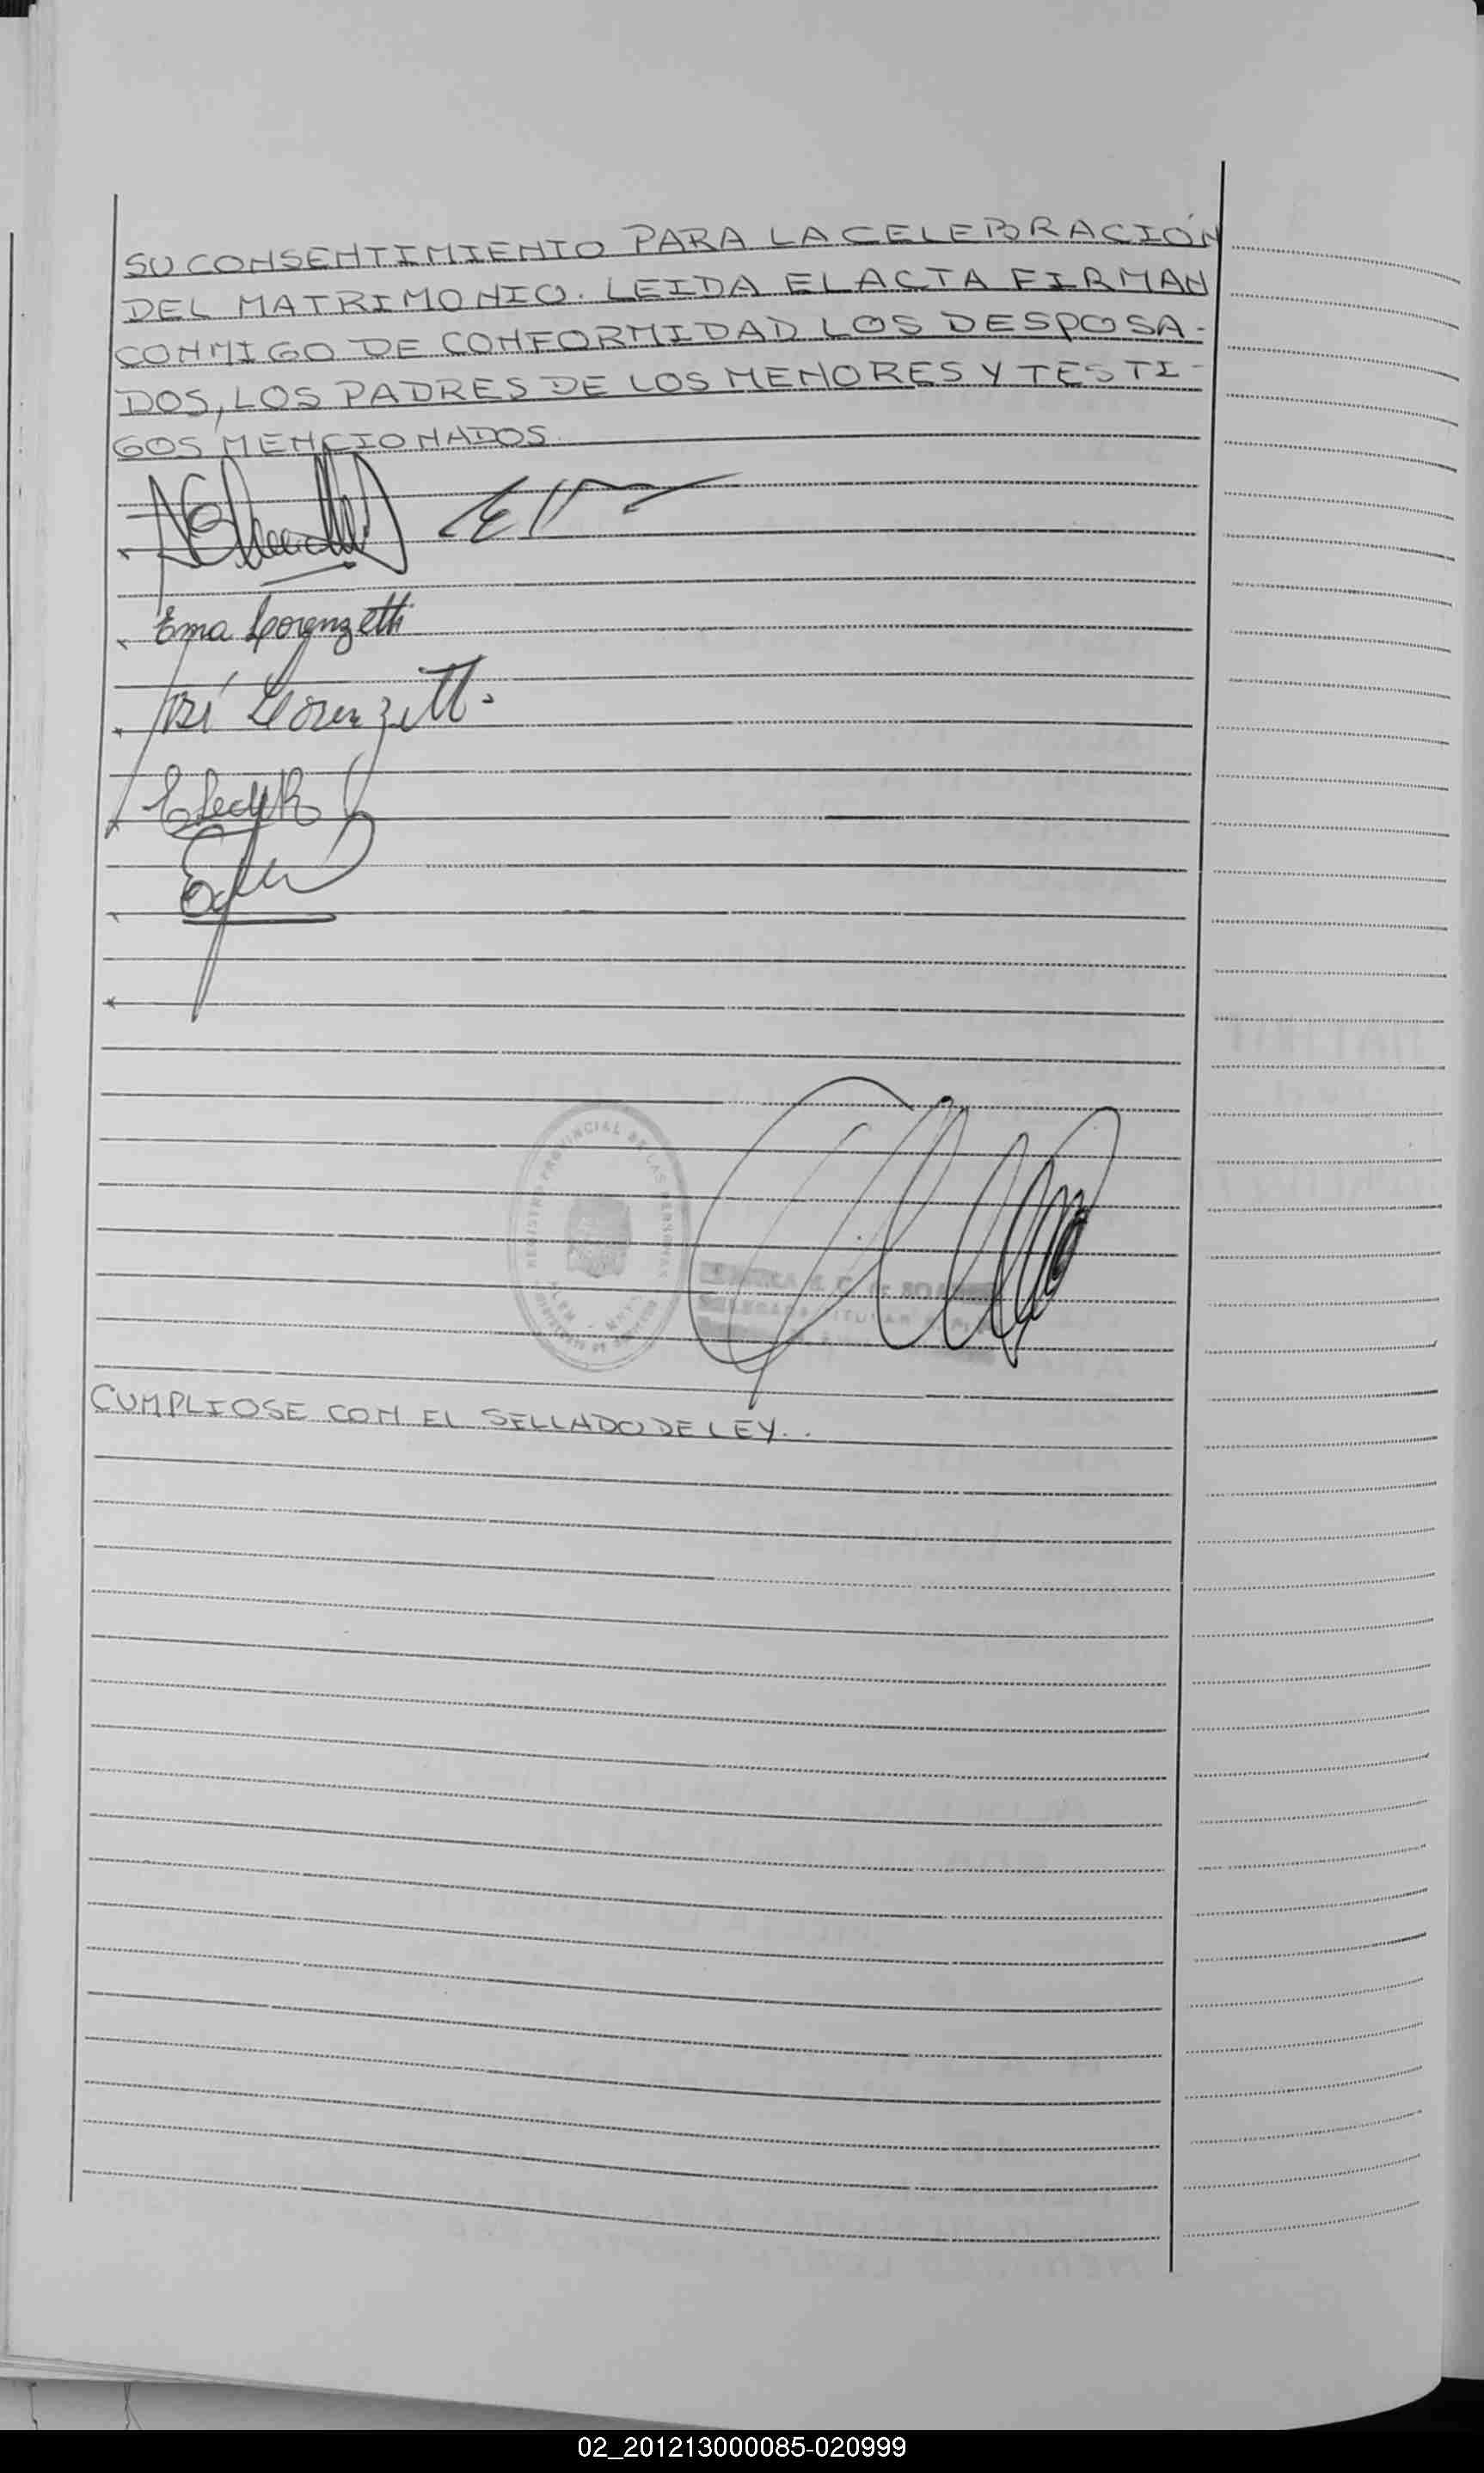 SU CONSENTIMIENTO PARA LA CELEBRACIÓN
DEL MATRIMONIO. LEIDA EL ACTA FIRMAN
CONMIGO DE CONFORMIDAD LOS DESPOSA-
DOS, LOS PADRES DE LOS MENORES Y TESTI-
GOS MENCIONADOS.
Ema Lorenzetti
Lorenzetti
REGISTRO PROVINCIAL DE LAS PERSONAS
CUMPLIOSE CON EL SELLADO DE LEY..
02_201213000085-020999